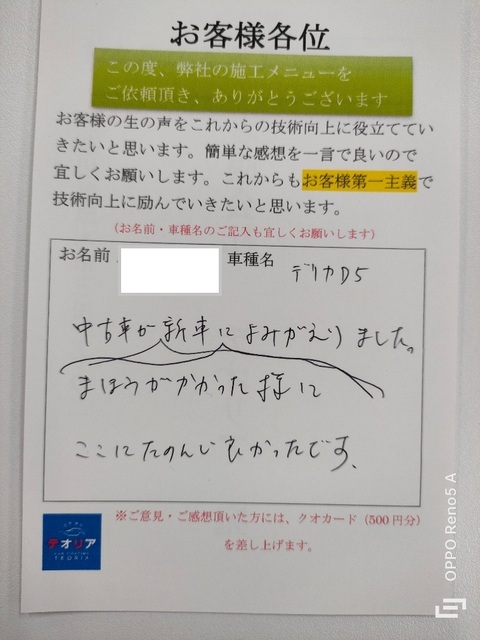 お客様各位
この度、弊社の施工メニューを
ご依頼頂き、ありがとうございます
お客様の生の声をこれからの技術向上に役立ててい
きたいと思います。簡単な感想を一言で良いので
宜しくお願いします。これからもお客様第一主義で
技術向上に励んでいきたいと思います。
(お名前・車種名のご記入も宜しくお願いします)
お名前 車種名 デリカD5
中古車が新車によみがえりました。
まほうがかかった様に
ここにたのんで良かったです、
※ご意見・ご感想頂いた方には、クオカード(500円分)
を差し上げます。
テオリア
TEORIA
OPPO Reno5 A